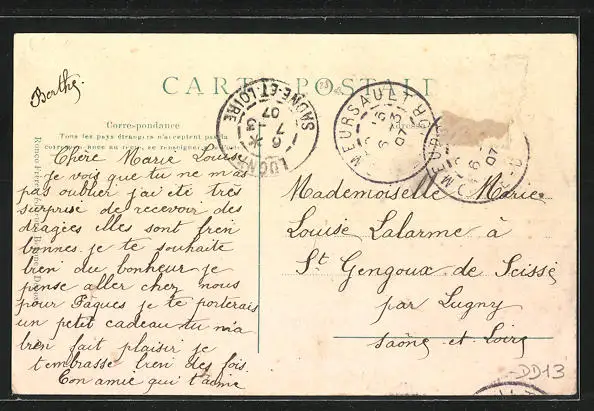 Berthe.
CARTE POSTALE
Correspondance
Tous les pays étrangers n'acceptent pas la
correspondance au recto, se renseigner à la Poste
Chère Marie Louise
je vois que tu ne m'as
pas oublier j'ai été très
surprise de recevoir des
dragées elles sont bien
bonnes. je te souhaite
bien du bonheur je
pense aller chez nous
pour Pâques je te porterais
un petit cadeau tu m'a
bien fait plaisir je
t'embrasse bien des fois
Ton amie qui t'aime
SAONE-ET-LOIRE
6
7
07
LUGNY
MEURSAULT
6
07
MEURSAULT
6
07
Mademoiselle Marie
Louise Lalarme à
St Gengoux de Scissé
par Lugny
Saône et Loire
DD13